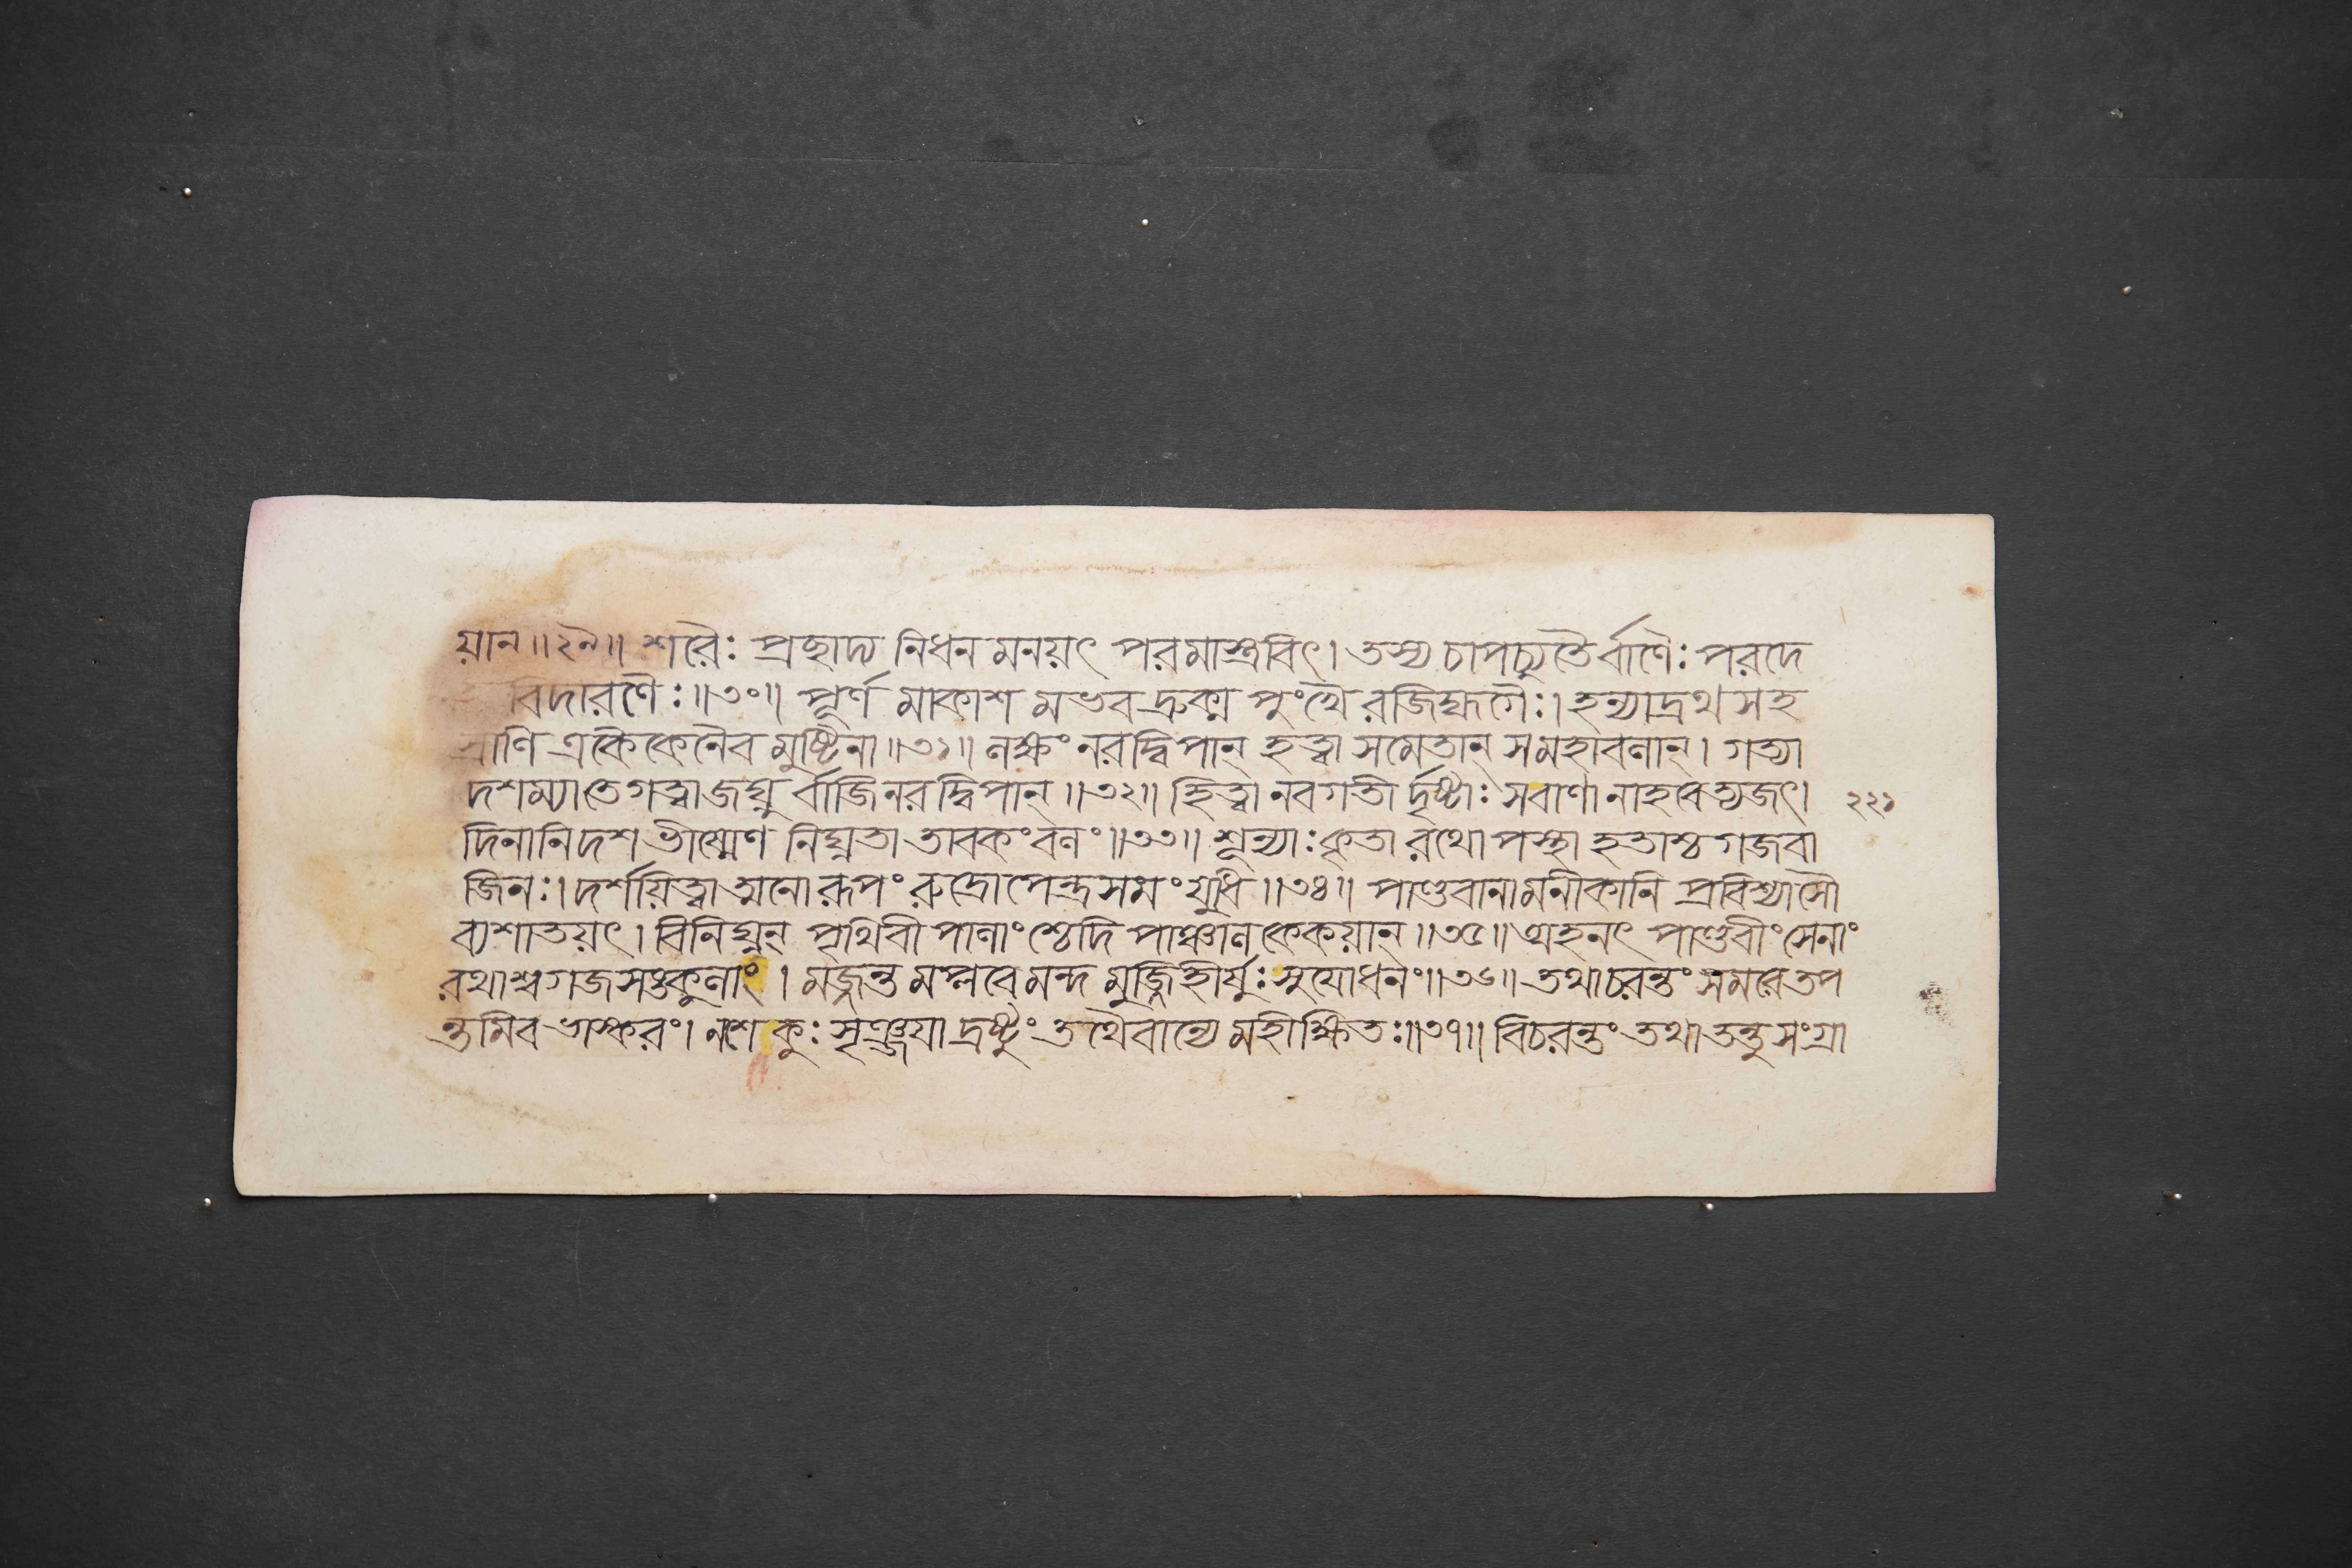 য়ান॥২৯॥ শরৈঃ প্রচ্ছাদ্য নিধন মনয়ৎ পরমাস্ত্রবিৎ। তস্য চাপচ্যুতৈর্বাণৈঃ পরদে
বিদারণৈঃ॥৩০॥ পূর্ণ মাকাশ মভবদ্রুক্ম পুংখৈ রজিহ্মগৈঃ। হন্যাদ্রথ সহ
স্রাণি একৈকেনৈব মুষ্টিনা॥৩১॥ লক্ষং নরদ্বিপান্ হত্বা সমেতান্ সমহাবলান্। গত্যা
দশম্যা তে গত্বা জঘ্নু র্বাজিনরদ্বিপান্॥৩২॥ হিত্বা নবগতী র্দৃষ্টাঃ সবাণা নাহবেত্যজৎ। ২২১
দিনানি দশ ভীষ্মেণ নিঘ্নতা তাবকং বলং॥৩৩॥ শূন্যাঃ কৃতা রথোপস্থা হতাশ্চ গজবা
জিনঃ। দর্শয়িত্বাত্মনো রূপং রুদ্রোপেন্দ্রসমং যুধি॥৩৪॥ পাণ্ডবানামনীকানি প্রবিশ্যাসৌ
ব্যশাতয়ৎ। বিনিঘ্নন্ পৃথিবী পালাংশ্চেদি পাঞ্চাল কেকয়ান্॥৩৫॥ অহনৎ পাণ্ডবীং সেনাং
রথাশ্বগজসঙ্কুলাং। মজ্জন্ত মপ্লবে মন্দ মুজ্জিহীর্ষুঃ সুযোধনং॥৩৬॥ তথাচরন্তং সমরে তপ
ন্তমিব ভাস্করং। নশেকুঃ সৃঞ্জয়া দ্রষ্টুং তথৈবান্যে মহীক্ষিতঃ॥৩৭॥ বিচরন্তং তথা তন্তু সংগ্রা